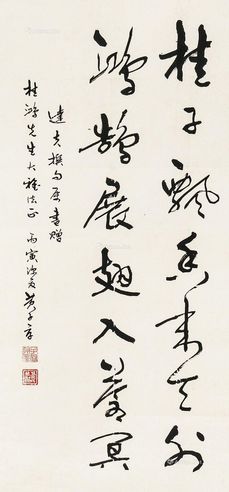 桂子飘香来天外
鸿鹄展翅入苍冥
达夫撰句属书赠
桂鸿先生大雅法正 丙寅 黄子厚